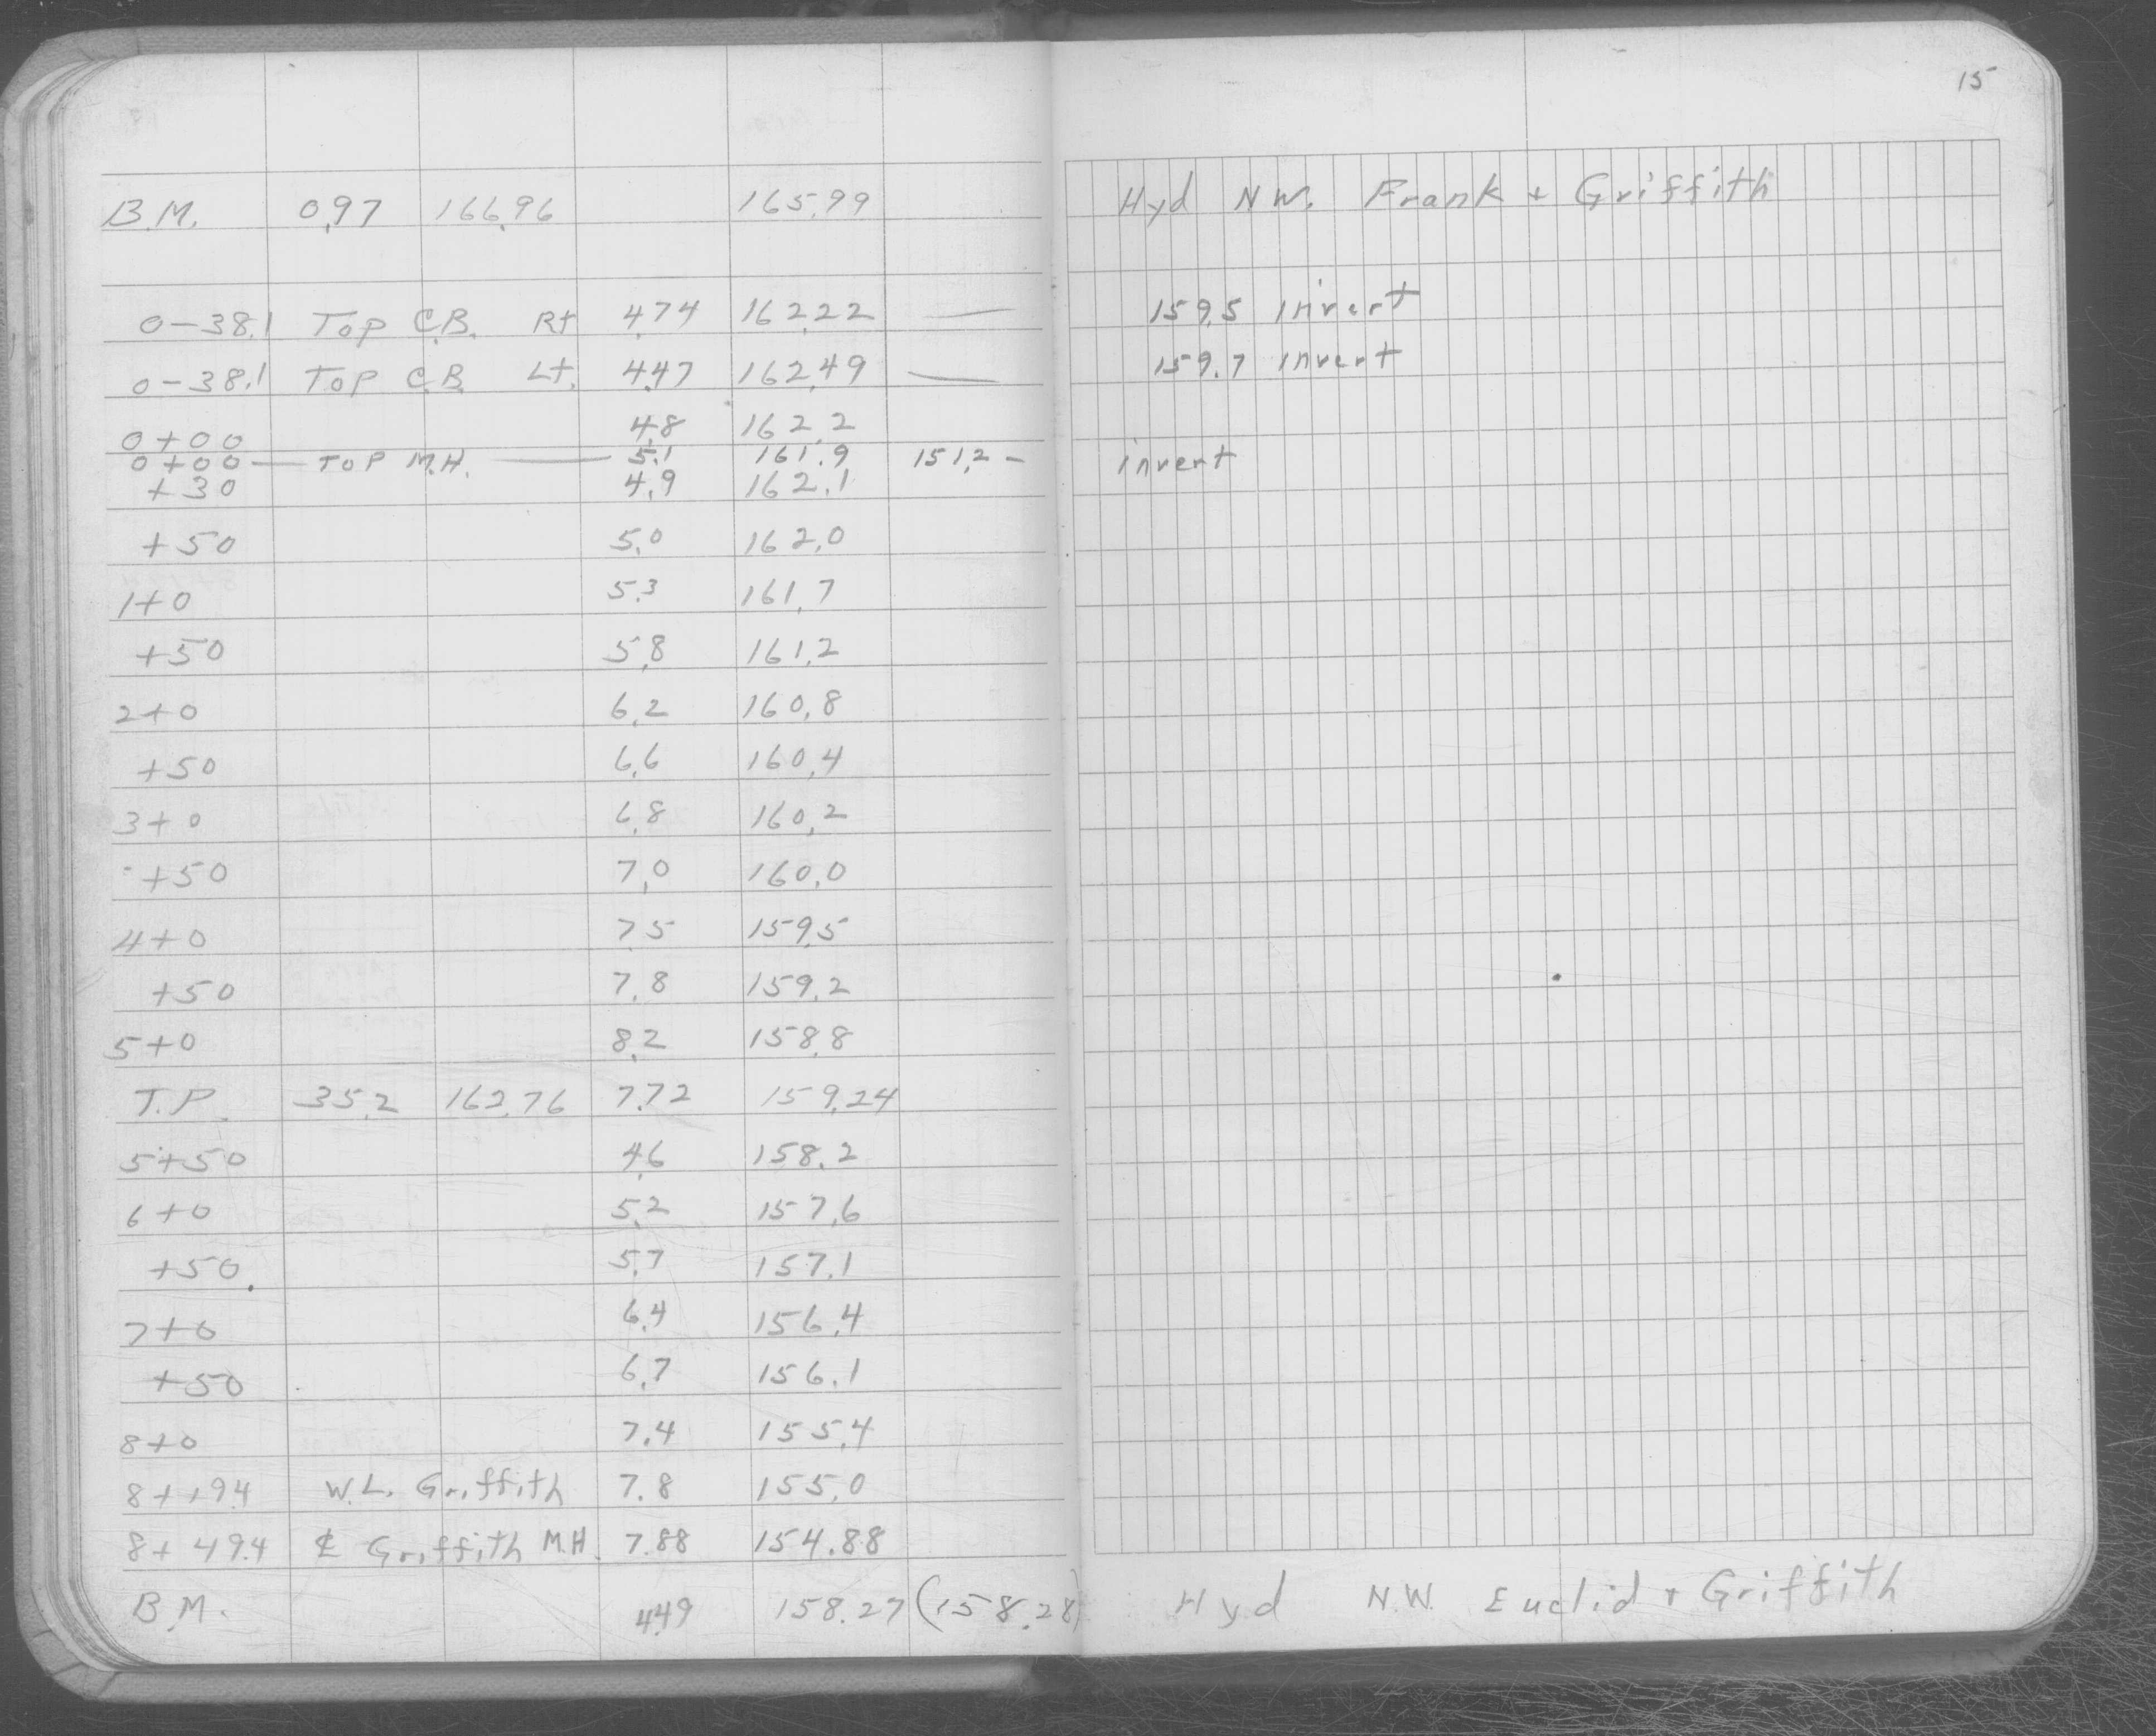 15
B.M. 0.97 166.96 165.99 Hyd N.W. Frank + Griffith
0-38.1 Top C.B. Rt 4.74 162.22 — 159.5 invert
0-38.1 Top C.B. Lt. 4.47 162.49 — 159.7 invert
0+00 4.8 162.2
0+00 — Top M.H. — 5.1 161.9 151.2 - invert
+30 4.9 162.1
+50 5.0 162.0
1+0 5.3 161.7
+50 5.8 161.2
2+0 6.2 160.8
+50 6.6 160.4
3+0 6.8 160.2
+50 7.0 160.0
4+0 7.5 159.5
+50 7.8 159.2
5+0 8.2 158.8
T.P. 35.2 162.76 7.72 159.24
5+50 4.6 158.2
6+0 5.2 157.6
+50. 5.7 157.1
7+0 6.4 156.4
+50 6.7 156.1
8+0 7.4 155.4
8+19.4 W.L. Griffith 7.8 155.0
8+49.4 ⅊ Griffith M.H. 7.88 154.88
B.M. 4.49 158.27 (158.28) Hyd N.W. Euclid + Griffith